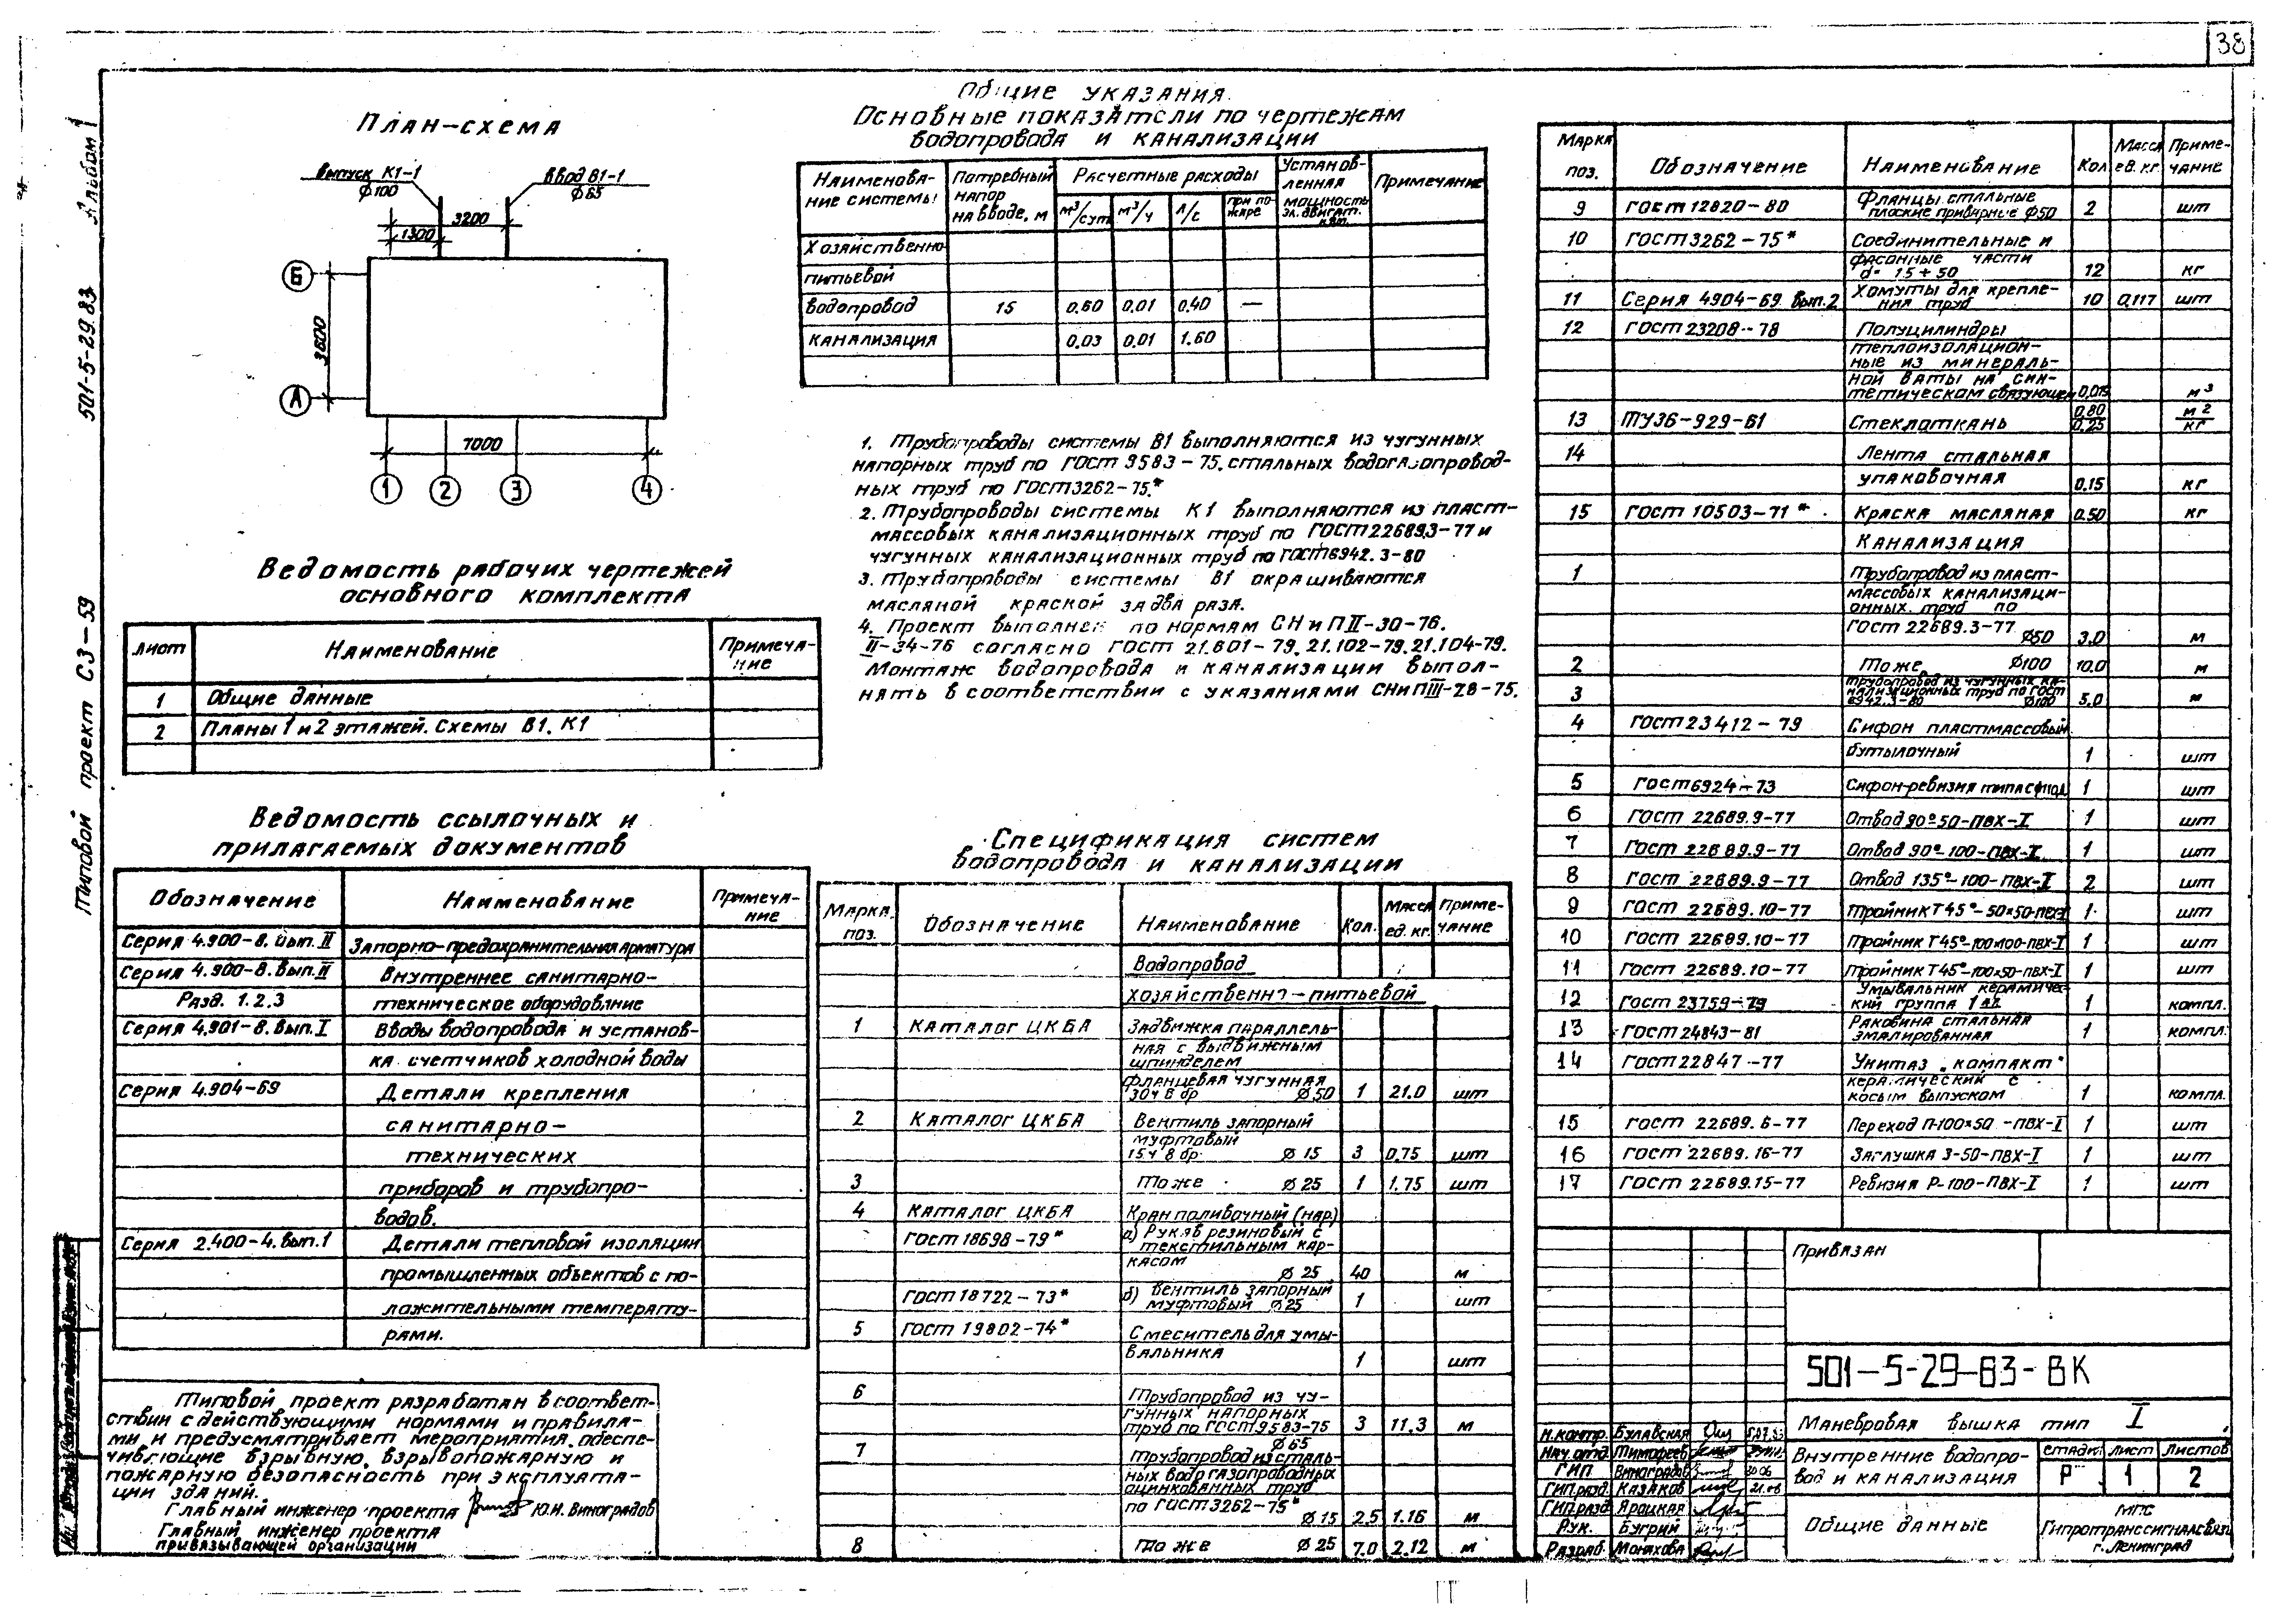 38
Альбом 1
501-5-29.83
Типовой проект СЗ-59
План-схема
Выпуск К1-1
Ф100
Ввод В1-1
Ф65
3200
1300
Б
А
3600
7000
1 2 3 4
Ведомость рабочих чертежей
основного комплекта
Лист Наименование Примеча-
ние
1 Общие данные
2 Планы 1 и 2 этажей. Схемы В1, К1
Ведомость ссылочных и
прилагаемых документов
Обозначение Наименование Примеча-
ние
Серия 4.900-8. вып. II Запорно-предохранительная арматура
Серия 4.900-8. вып. II Внутреннее санитарно-
Разд. 1.2.3 техническое оборудование
Серия 4.901-8. вып. I Вводы водопровода и установ-
ка счетчиков холодной воды
Серия 4.904-69 Детали крепления
санитарно-
технических
приборов и трубопро-
водов.
Серия 2.400-4. вып.1 Детали тепловой изоляции
промышленных объектов с по-
ложительными температу-
рами.
Типовой проект разработан в соответ-
ствии с действующими нормами и правила-
ми и предусматривает мероприятия, обеспе-
чивающие взрывную, взрывопожарную и
пожарную безопасность при эксплуата-
ции зданий.
Главный инженер проекта Ю.И. Виноградов
Главный инженер проекта
привязывающей организации
Общие указания.
Основные показатели по чертежам
водопровода и канализации
Наименова-
ние системы
Потребный
напор
на вводе, м
Расчетные расходы
м³/сут м³/ч л/с при по-
жаре
Установ-
ленная
мощность
эл. двигат.
квт.
Примечание
Хозяйственно-
питьевой
водопровод 15 0.60 0.01 0.40 —
Канализация 0.03 0.01 1.60
1. Трубопроводы системы В1 выполняются из чугунных
напорных труб по ГОСТ 9583-75, стальных водогазопровод-
ных труб по ГОСТ3262-75.*
2. Трубопроводы системы К1 выполняются из пласт-
массовых канализационных труб по ГОСТ22689.3-77 и
чугунных канализационных труб по ГОСТ6942.3-80
3. Трубопроводы системы В1 окрашиваются
масляной краской за два раза.
4. Проект выполнен по нормам СНиП II-30-76.
II-34-76 согласно ГОСТ 21.601-79, 21.102-79, 21.104-79.
Монтаж водопровода и канализации выпол-
нять в соответствии с указаниями СНиП III-28-75.
Спецификация систем
водопровода и канализации
Марка
поз. Обозначение Наименование Кол. Масса
ед. кг. Приме-
чание
Водопровод
хозяйственно-питьевой
1 Каталог ЦКБА Задвижка параллель-
ная с выдвижным
шпинделем
фланцевая чугунная
30ч 6 бр Ф50 1 21.0 шт
2 Каталог ЦКБА Вентиль запорный
муфтовый
15ч 8 бр. Ф15 3 0.75 шт
3 То же Ф25 1 1.75 шт
4 Каталог ЦКБА Кран поливочный (нар.)
ГОСТ18698-79* а) Рукав резиновый с
текстильным кар-
касом
Ф25 40 м
ГОСТ18722-73* б) Вентиль запорный
муфтовый Ф25 1 шт
5 ГОСТ 19802-74* Смеситель для умы-
вальника 1 шт
6 Трубопровод из чу-
гунных напорных
труб по ГОСТ9583-75 3 11.3 м
Ф65
7 Трубопровод из сталь-
ных водогазопроводных
оцинкованных труб
по ГОСТ3262-75*
Ф15 2.5 1.16 м
8 То же Ф25 7.0 2.12 м
Марка
поз. Обозначение Наименование Кол. Масса
ед. кг. Приме-
чание
9 ГОСТ12820-80 Фланцы стальные
плоские приварные Ф50 2 шт
10 ГОСТ3262-75* Соединительные и
фасонные части
d= 15÷50 12 кг
11 Серия 4904-69 вып.2 Хомуты для крепле-
ния труб 10 0.117 шт
12 ГОСТ23208-78 Полуцилиндры
теплоизоляцион-
ные из минераль-
ной ваты на син-
тетическом связующем 0.015 м³
13 ТУ36-929-61 Стеклоткань 0.80 м²
0.25 кг
14 Лента стальная
упаковочная 0.15 кг
15 ГОСТ 10503-71* Краска масляная 0.50 кг
Канализация
1 Трубопровод из пласт-
массовых канализаци-
онных труб по
ГОСТ 22689.3-77
Ф50 3.0 м
2 То же Ф100 10.0 м
3 Трубопровод из чугунных ка-
нализационных труб по ГОСТ
6942.3-80 Ф100 5.0 м
4 ГОСТ23412-79 Сифон пластмассовый
бутылочный 1 шт
5 ГОСТ6924-73 Сифон-ревизия типа 1 шт
6 ГОСТ 22689.9-77 Отвод 90°-50-ПВХ-I 1 шт
7 ГОСТ 22689.9-77 Отвод 90°-100-ПВХ-I 1 шт
8 ГОСТ 22689.9-77 Отвод 135°-100-ПВХ-I 2 шт
9 ГОСТ 22689.10-77 Тройник Т45°-50х50-ПВХ-I 1 шт
10 ГОСТ 22689.10-77 Тройник Т45°-100х100-ПВХ-I 1 шт
11 ГОСТ 22689.10-77 Тройник Т45°-100х50-ПВХ-I 1 шт
12 ГОСТ 23759-79 Умывальник керамичес-
кий группа 1 1 компл.
13 ГОСТ 24843-81 Раковина стальная
эмалированная 1 компл.
14 ГОСТ22847-77 Унитаз „компакт"
керамический с
косым выпуском 1 компл.
15 ГОСТ 22689.6-77 Переход П-100х50-ПВХ-I 1 шт
16 ГОСТ 22689.16-77 Заглушка З-50-ПВХ-I 1 шт
17 ГОСТ 22689.15-77 Ревизия Р-100-ПВХ-I 1 шт
Привязан
501-5-29-83-ВК
Маневровая вышка тип I
Н.контр. Булавская
Нач.отд. Тимофеев
ГИП Виноградов
ГИП.разд. Казаков
ГИП.разд. Яроцкая
Рук. Бугрий
Разраб. Монахова
Внутренние водопро-
вод и канализация
стадия лист листов
Р 1 2
Общие данные
МПС
Гипротранссигналсвязь
г. Ленинград